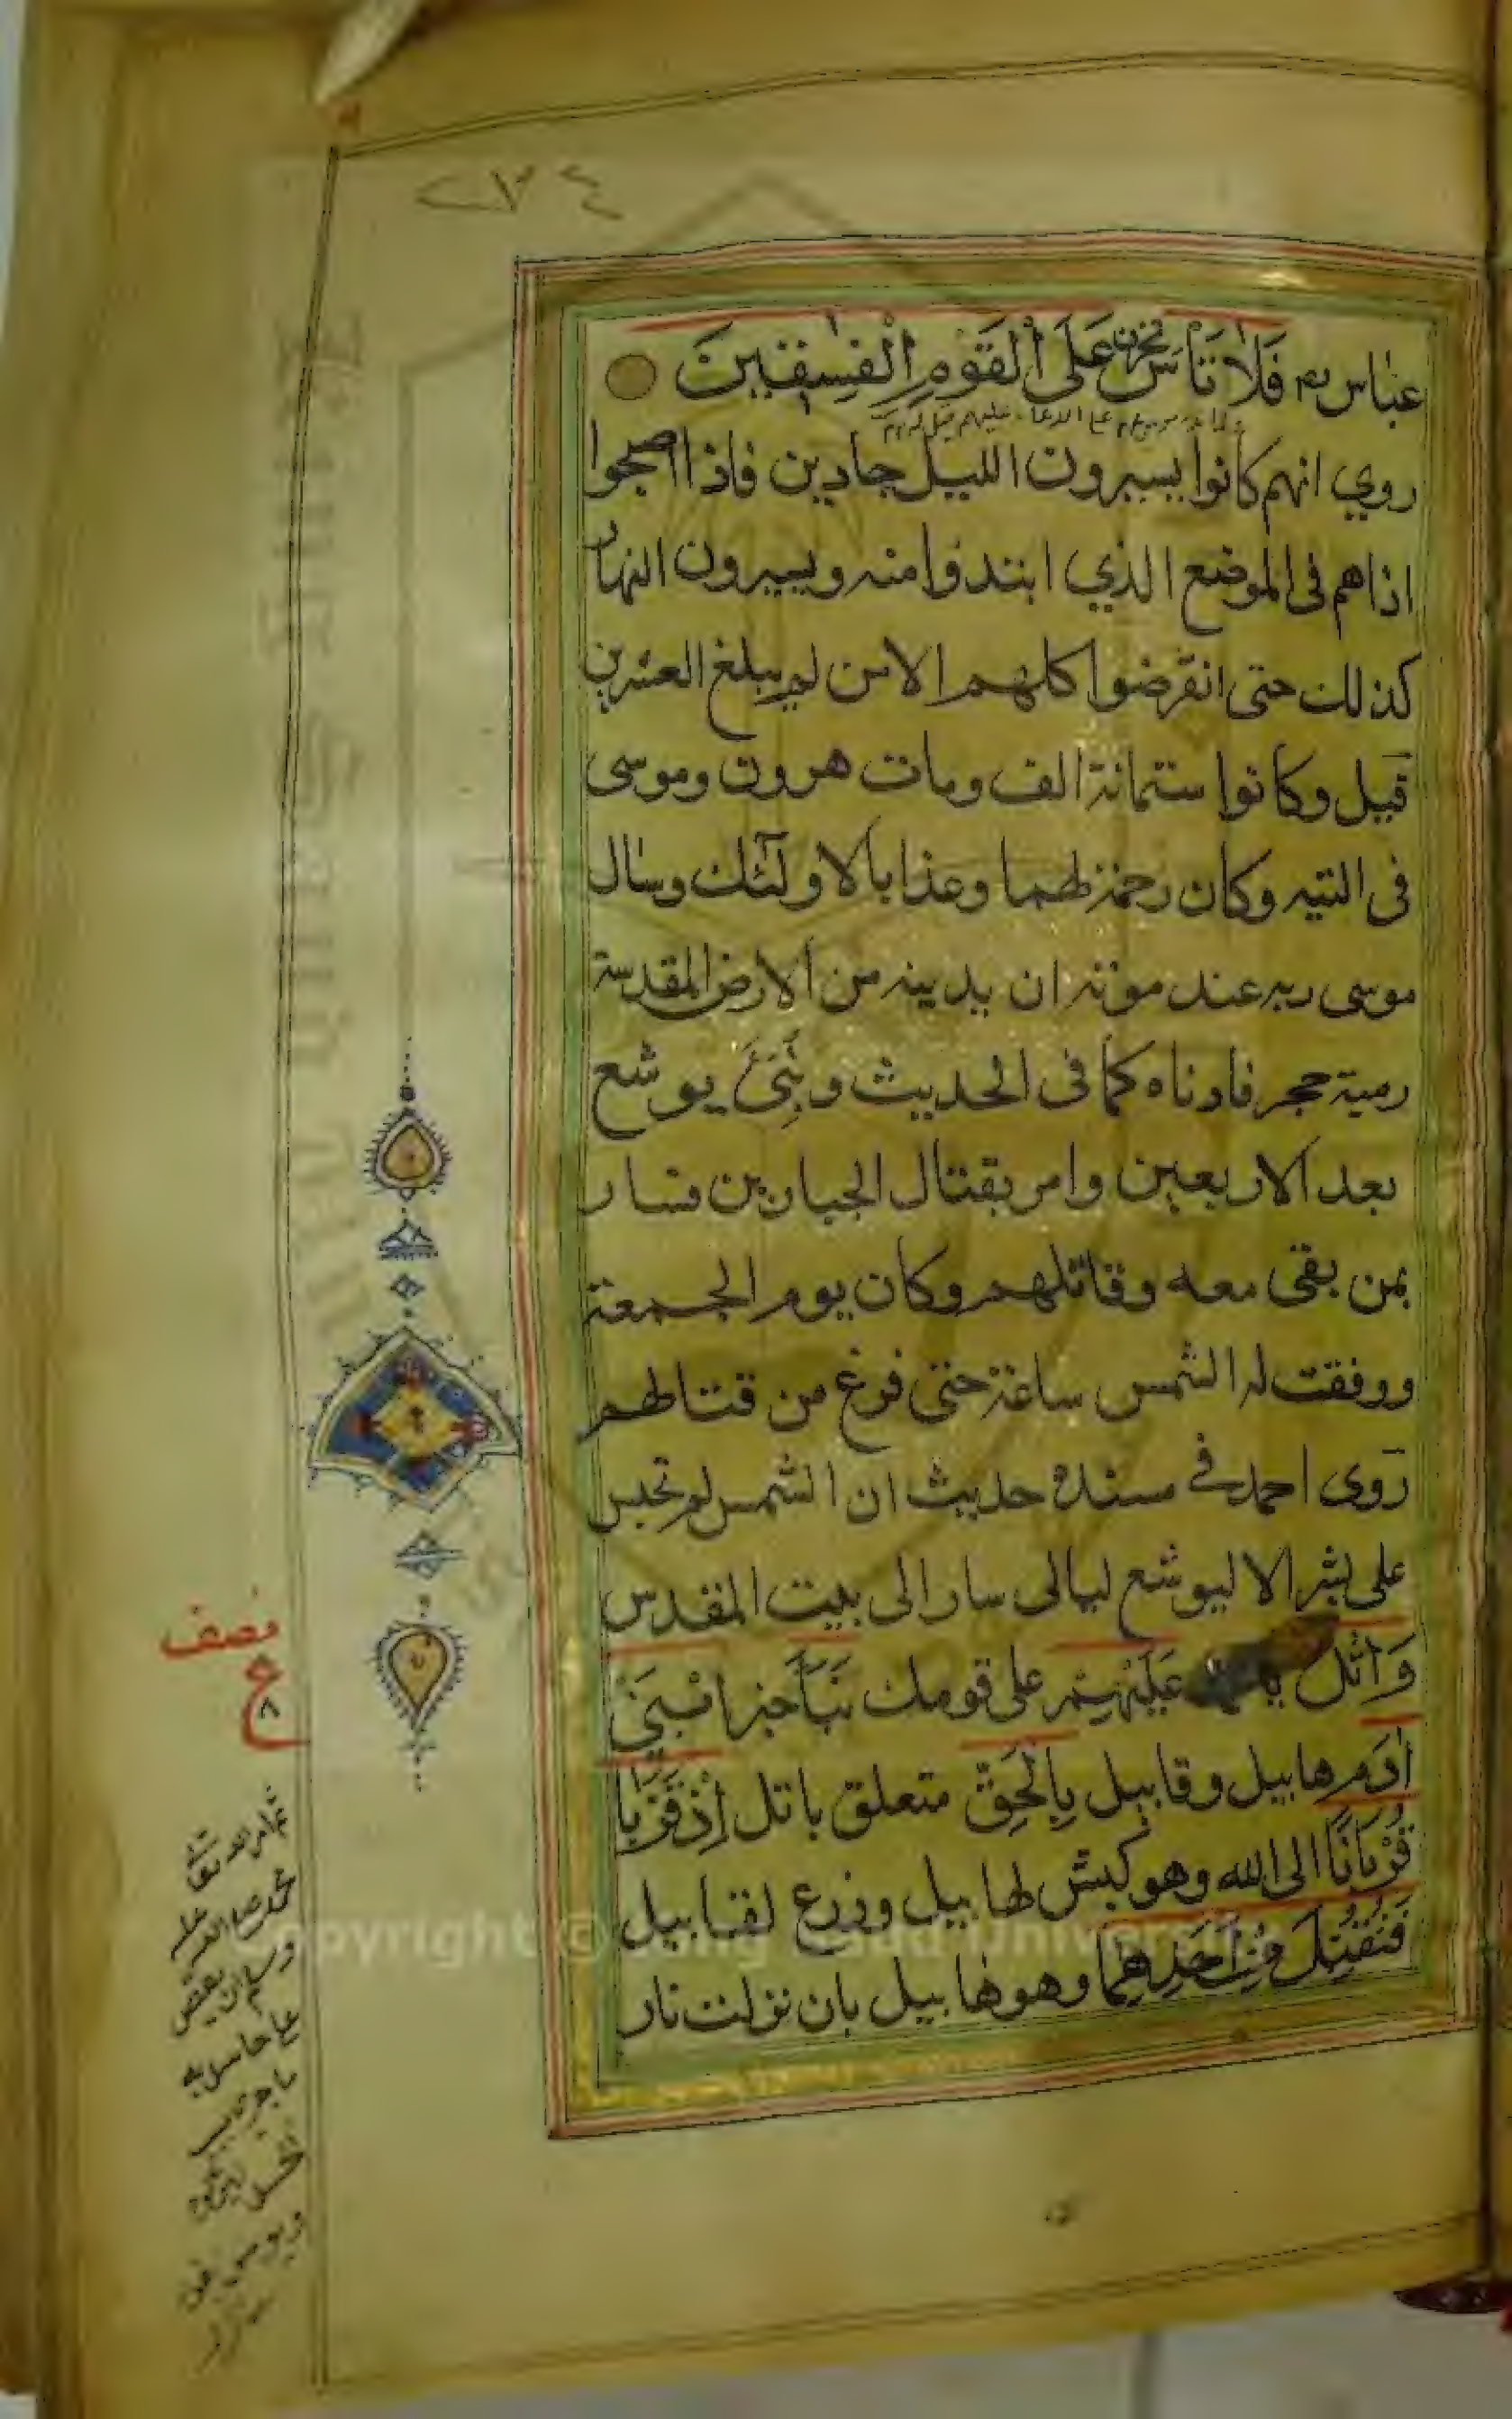 ٢٣٤
عباس رم فَلَا تَأْسَ تحزن عَلَى الْقَوْمِ الْفٰسِقِينَ
روي انهم كانوا يسيرون الليل جادين فاذا اصبحوا
اذا هم فى الموضع الذي ابتدؤا منه ويسيرون النهار
كذلك حتى انقرضوا كلهم الا من لم يبلغ العشرين
قيل وكانوا ستمائة الف ومات هرون وموسى
فى التيه وكان رحمة لهما وعذابا لاولئك وسال
موسى ربه عند موته ان يدينه من الارض المقدسة
رمية حجر فادناه كما فى الحديث ونبئ يوشع
بعد الاربعين وامر بقتال الجبارين فسار
بمن بقى معه وقاتلهم وكان يوم الجمعة
ووفقت له الشمس ساعة حتى فرغ من قتالهم
روى احمد في مسنده حديث ان الشمس لم تحبس
على بشر الا ليوشع ليالى سار الى بيت المقدس
وَاتْلُ عَلَيْهِمْ على قومك نَبَأَ خبر ابْنَيْ
اٰدَمَ هابيل وقابيل بِالْحَقِّ متعلق باتل إِذْ قَرَّبَا
قُرْبَانًا الى الله وهو كبش لهابيل وزرع لقابيل
فَتُقُبِّلَ مِنْ أَحَدِهِمَا وهو هابيل بان نزلت نار
نصف
ع
٨
Copyright © King Saud University